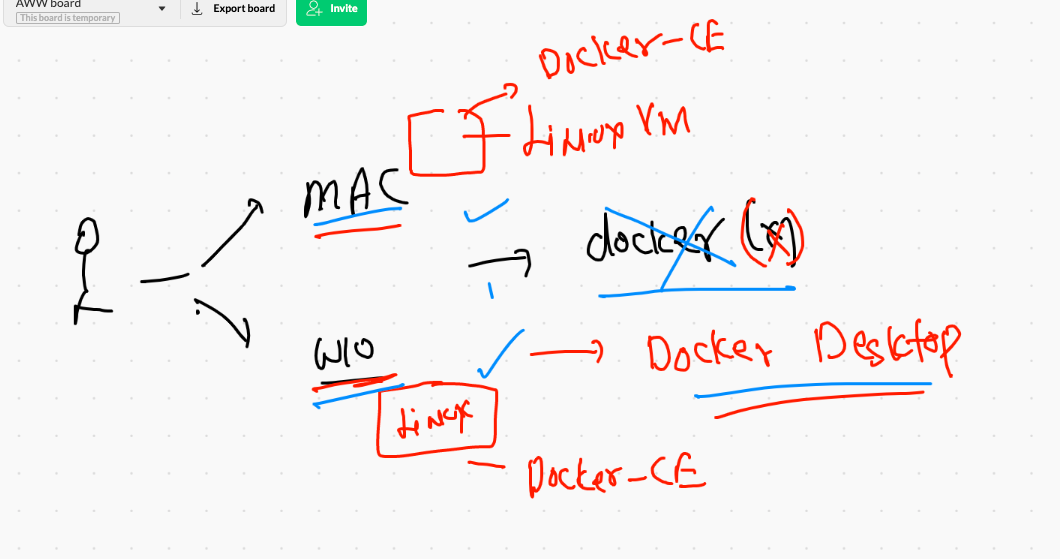 AWW board
This board is temporary
Export board
Invite
Docker-CE
Linux VM
MAC
docker (x)
W10
Docker Desktop
Linux
Docker-CE